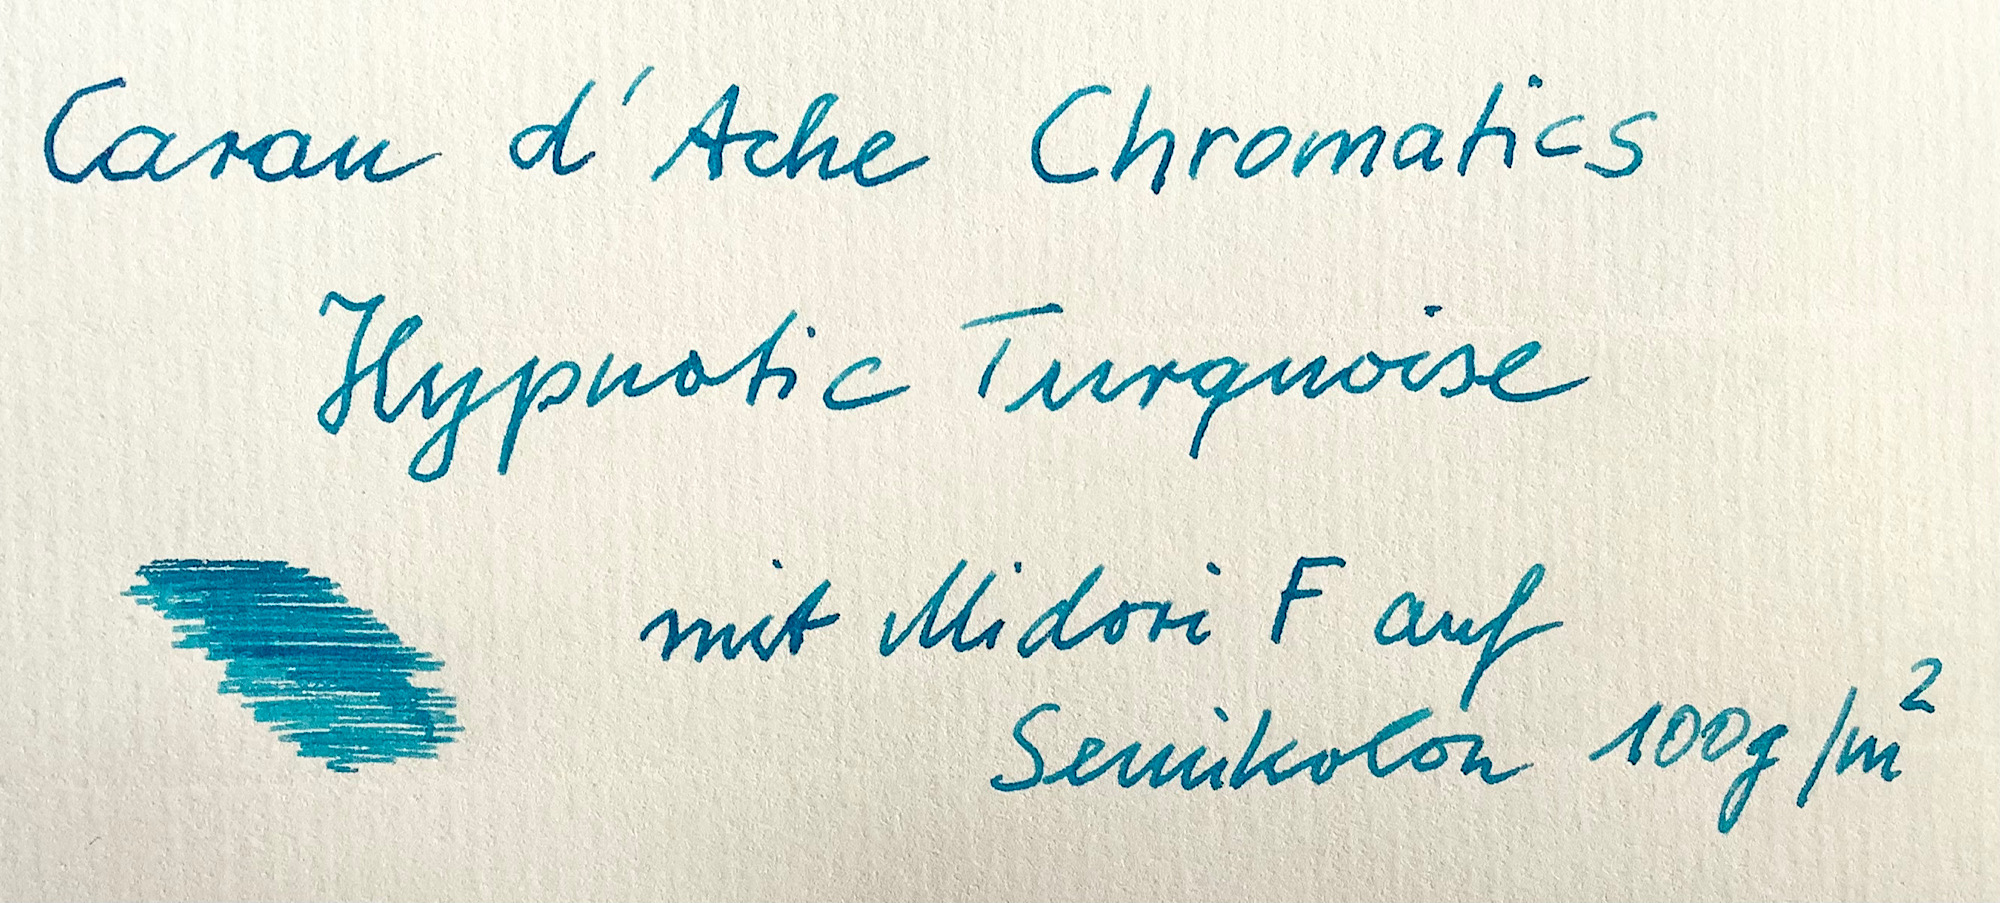 Caran d'Ache Chromatics
Hypnotic Turquoise
mit Midori F auf
Semikolon 100g/m²